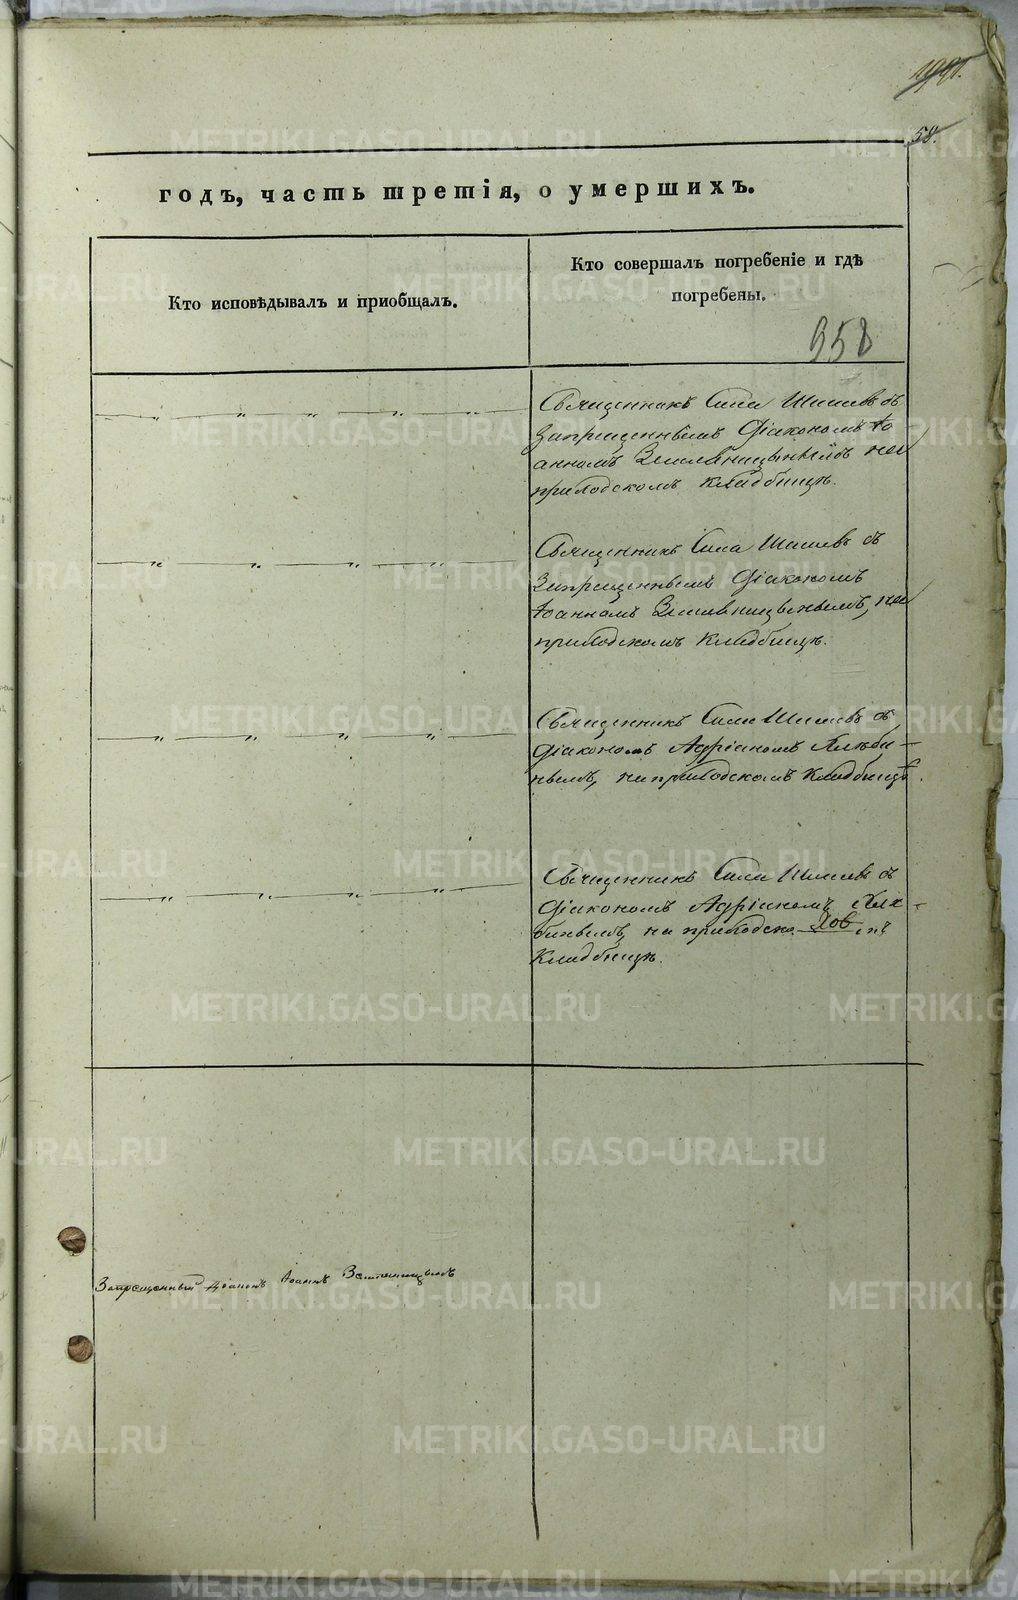 1991.
58.
годъ, часть третія, о умершихъ.
Кто исповѣдывалъ и приобщалъ.
Кто совершалъ погребеніе и гдѣ
погребены.
958
Священникъ Сила Шишевъ съ
запрещеннымъ Діакономъ Іо
анномъ на
приходскомъ кладбищѣ.
Священникъ Сила Шишевъ съ
Запрещеннымъ Діакономъ
Іоанномъ на
приходскомъ кладбищѣ.
Священникъ Сила Шишевъ съ
діакономъ Адріаномъ Хлѣби-
нымъ, на приходскомъ кладбищѣ.
Священникъ Сила Шишевъ съ
діакономъ Адріаномъ Хлѣ-
бинымъ, на приходско
Кладбищѣ.
Запрещенный Діаконъ Іоаннъ
METRIKI.GASO-URAL.RU